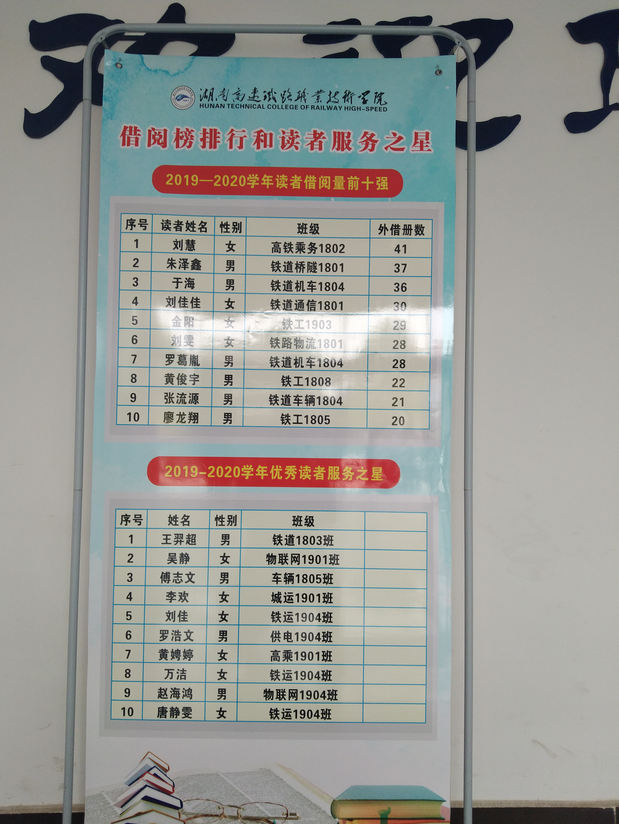 湖南高速铁路职业技术学院
HUNAN TECHNICAL COLLEGE OF RAILWAY HIGH-SPEED
借阅榜排行和读者服务之星
2019—2020学年读者借阅量前十强
序号 读者姓名 性别 班级 外借册数
1 刘慧 女 高铁乘务1802 41
2 朱泽鑫 男 铁道桥隧1801 37
3 于海 男 铁道机车1804 36
4 刘佳佳 女 铁道通信1801 30
5 金阳 女 铁工1903 29
6 刘雯 女 铁路物流1801 28
7 罗葛胤 男 铁道机车1804 28
8 黄俊宇 男 铁工1808 22
9 张流源 男 铁道车辆1804 21
10 廖龙翔 男 铁工1805 20
2019-2020学年优秀读者服务之星
序号 姓名 性别 班级
1 王羿超 男 铁道1803班
2 吴静 女 物联网1901班
3 傅志文 男 车辆1805班
4 李欢 女 城运1901班
5 刘佳 女 铁运1904班
6 罗浩文 男 供电1904班
7 黄娉婷 女 高乘1901班
8 万洁 女 铁运1904班
9 赵海鸿 男 物联网1904班
10 唐静雯 女 铁运1904班